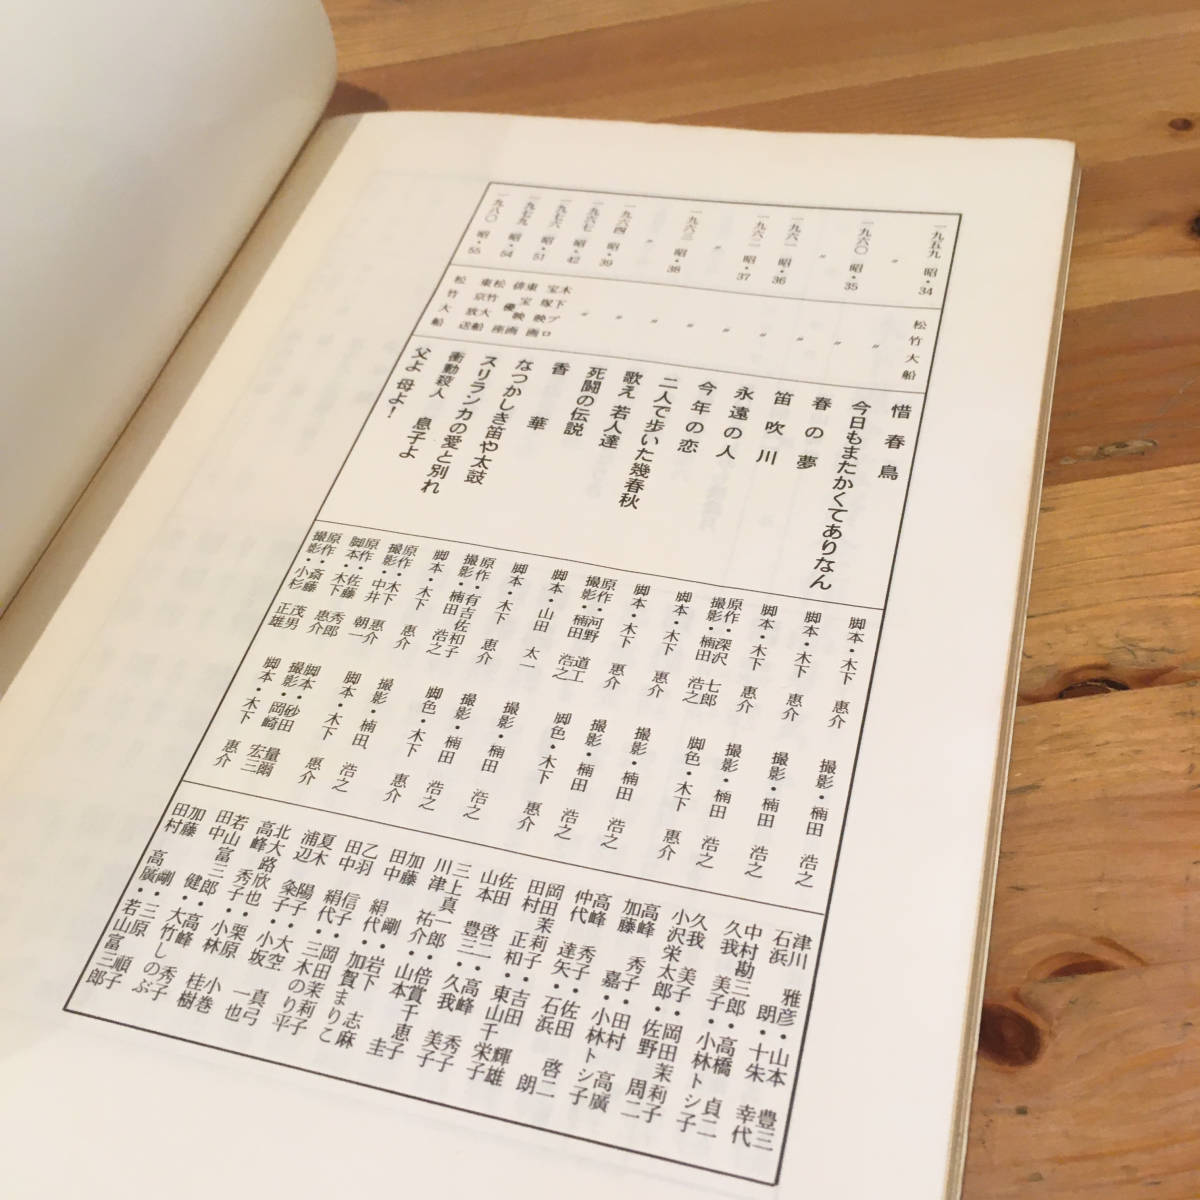 一九五九 昭・34
〃
一九六〇 昭・35
〃
一九六一 昭・36
一九六二 昭・37
〃
一九六三 昭・38
〃
一九六四 昭・39
一九六七 昭・42
一九七六 昭・51
一九七九 昭・54
一九八〇 昭・55
松竹大船
〃
〃
〃
〃
〃
〃
〃
〃
〃
木下プロ
宝塚映画
東宝映画
俳優座
松竹大船
東京放送
松竹大船
惜春鳥
今日もまたかくてありなん
春の夢
笛吹川
永遠の人
今年の恋
二人で歩いた幾春秋
歌え 若人達
死闘の伝説
香華
なつかしき笛や太鼓
スリランカの愛と別れ
衝動殺人 息子よ
父よ 母よ！
脚本・木下 惠介 撮影・楠田 浩之
脚本・木下 惠介 撮影・楠田 浩之
脚本・木下 惠介 撮影・楠田 浩之
原作・深沢 七郎 脚色・木下 惠介
撮影・楠田 浩之
脚本・木下 惠介 撮影・楠田 浩之
脚本・木下 惠介 撮影・楠田 浩之
原作・河野 道工 脚色・木下 惠介
撮影・楠田 浩之
脚本・山田 太一 撮影・楠田 浩之
脚本・木下 惠介 撮影・楠田 浩之
原作・有吉佐和子 脚色・木下 惠介
撮影・楠田 浩之
脚本・木下 惠介 撮影・楠田 浩之
原作・木下 惠介 脚本・木下 惠介
撮影・中井 朝一
原作・佐藤 秀郎 脚本・砂田 量爾
脚本・木下 惠介 撮影・岡崎 宏三
原作・斎藤 茂男 脚本・木下 惠介
撮影・小杉 正雄
津川 雅彦・山本 豊三
石浜 朗・十朱 幸代
中村勘三郎・高橋 貞二
久我 美子・小林トシ子
久我 美子・岡田茉莉子
小沢栄太郎・佐野 周二
高峰 秀子・田村 高廣
加藤 嘉・小林トシ子
高峰 秀子・佐田 啓二
仲代 達矢・石浜 朗
岡田茉莉子・吉田 輝雄
田村 正和・東山千栄子
佐田 啓二・高峰 秀子
山本 豊三・久我 美子
三上真一郎・倍賞千恵子
川津 祐介・山本 圭
加藤 剛・岩下 志麻
田中 絹代・加賀まりこ
乙羽 信子・岡田茉莉子
田中 絹代・三木のり平
夏木 陽子・大空 真弓
浦辺 粂子・小坂 一也
北大路欣也・栗原 小巻
高峰 秀子・小林 桂樹
若山富三郎・高峰 秀子
田中 健・大竹しのぶ
加藤 剛・三原 順子
田村 高廣・若山富三郎